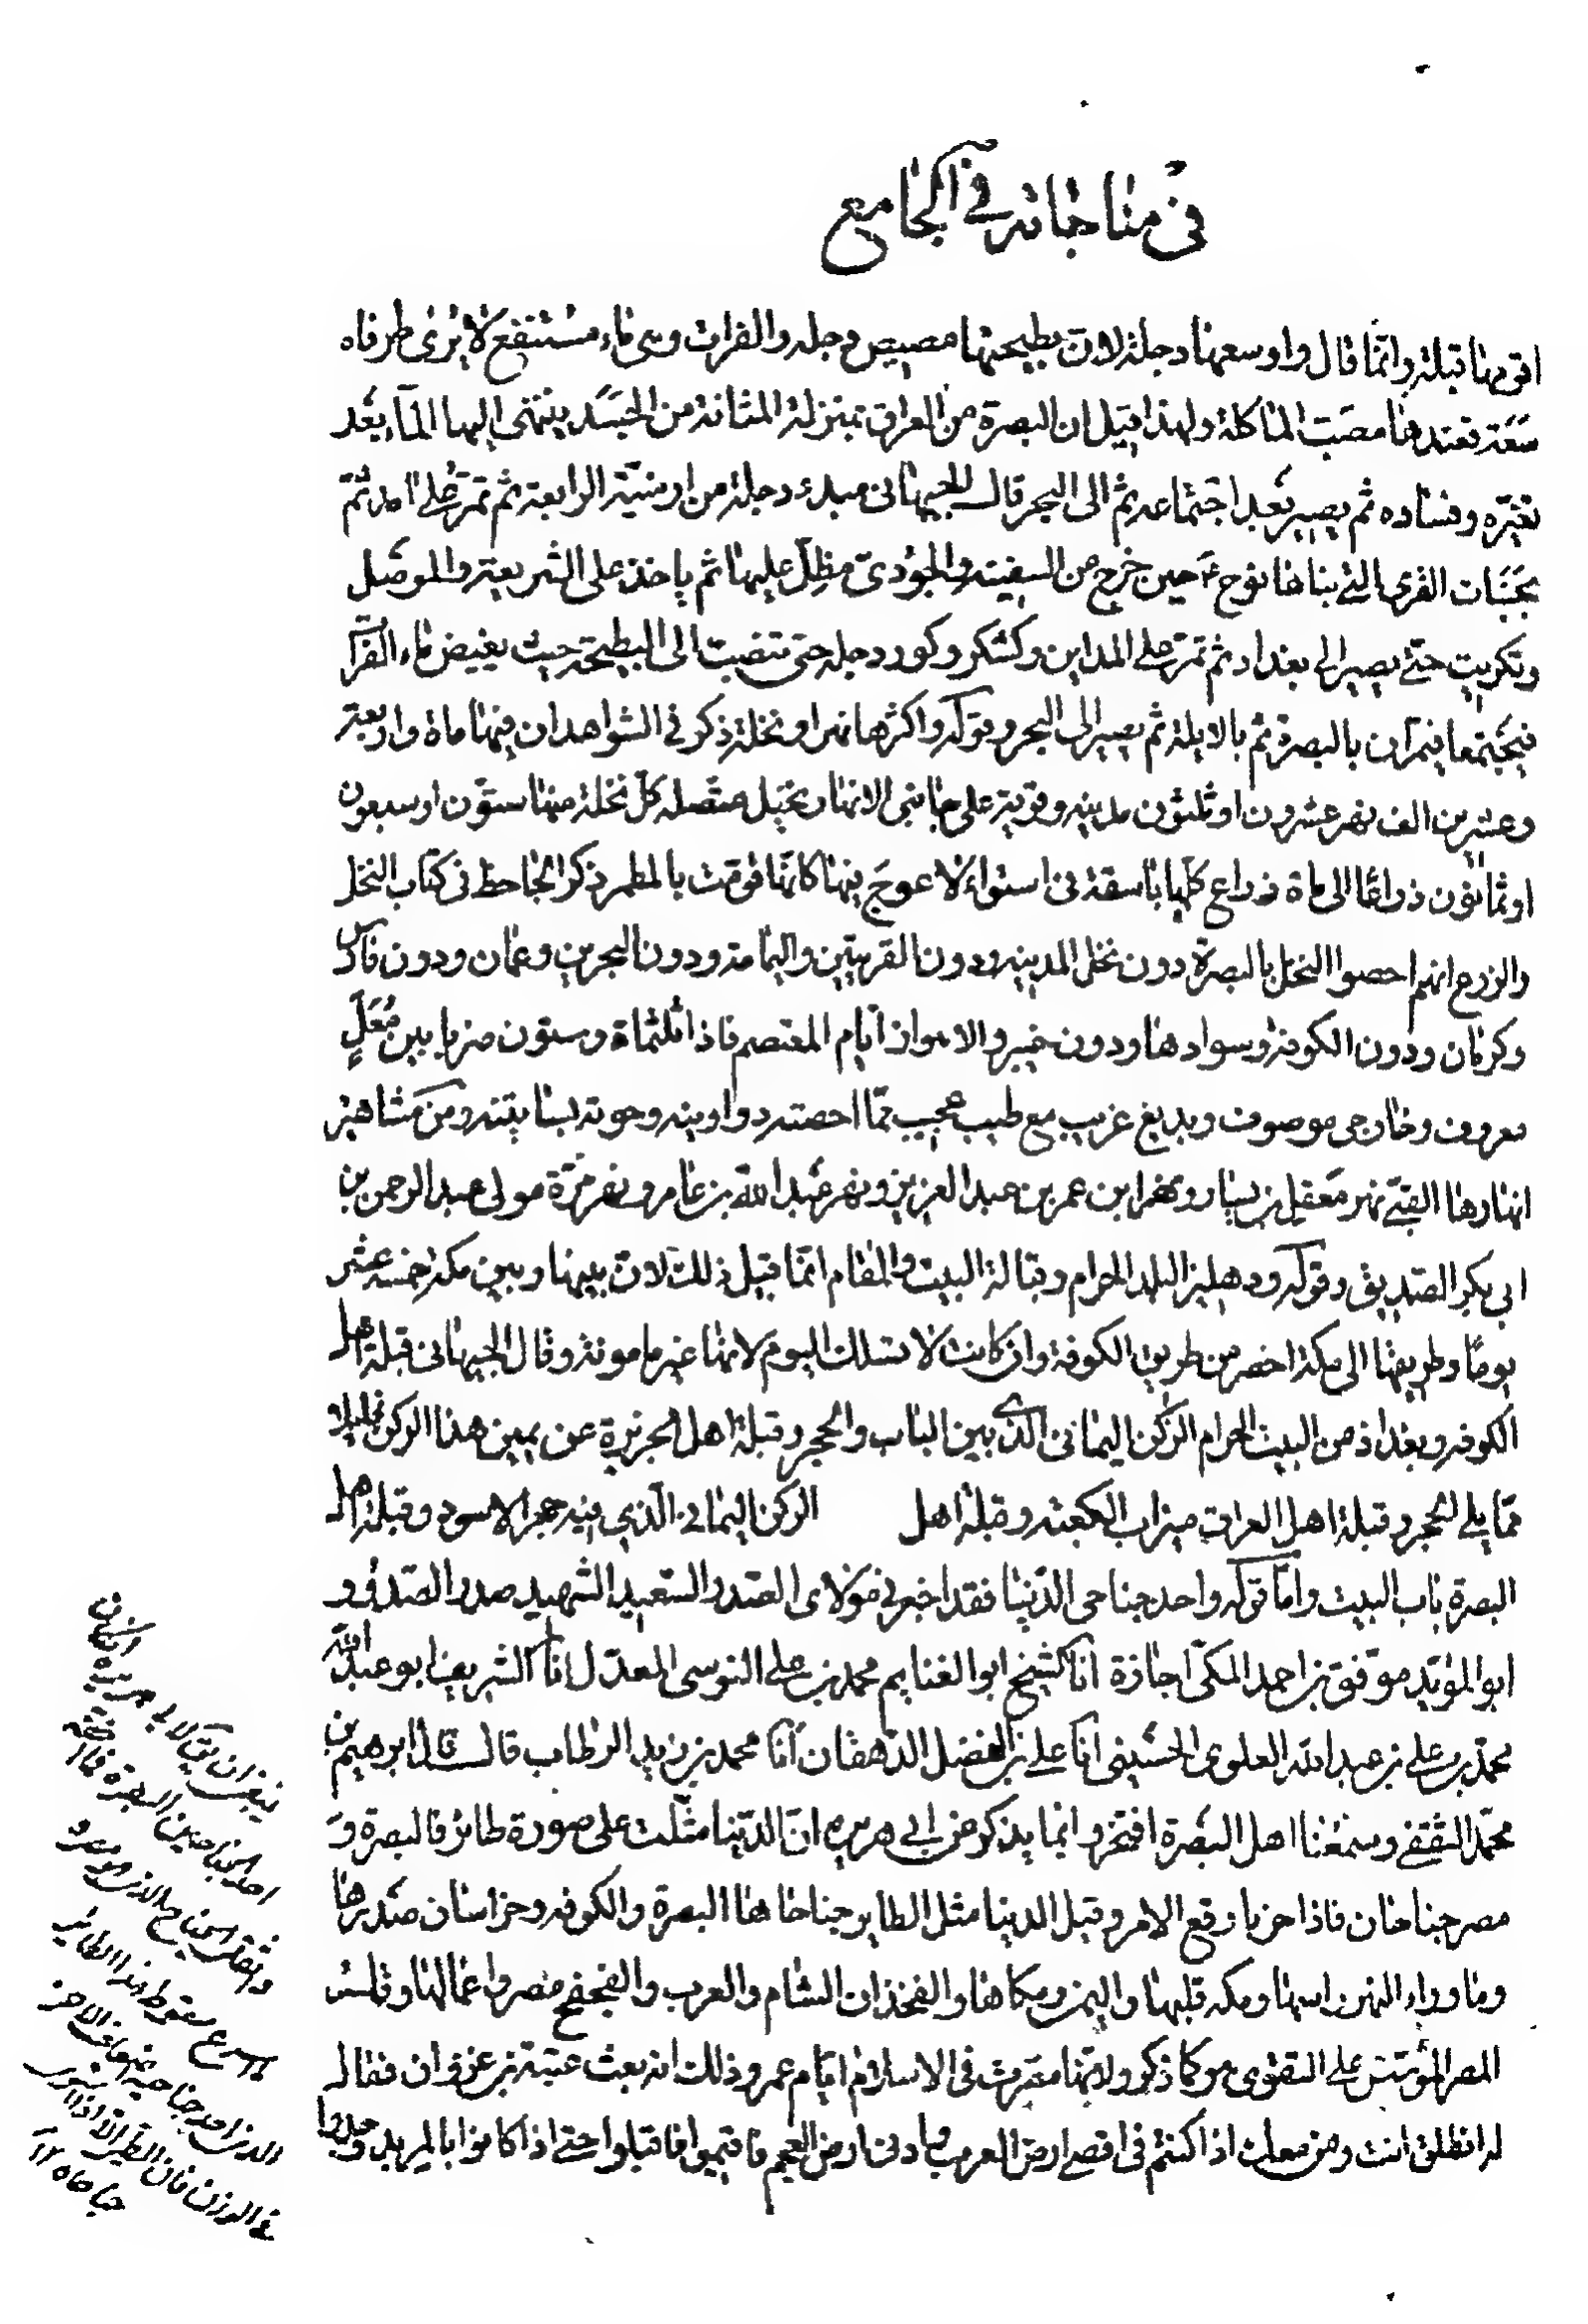 في مناجاته في الجامع
اقومها قبلة وانما قال واوسعها دجلة لان بطيحتها مصيص دجله والفرات وهي ماء مستنقع لا يرى طرفاه
سعة فعندها مصب الماء كله ولهذا قيل ان البصرة من العراق بمنزلة المثانة من الجسد ينتهي اليها الماء بعد
تغيره وفساده ثم يصير بعد اجتماعه ثم الى البحر قال الجيهاني مبدء دجلة من ارمنية الرابعة ثم تمر على امد ثم
بجنبات القرى التي بناها نوح ع م حين خرج من السفينة والجودى مظل عليها ثم ياخذ على الشريعة والموصل
وتكريت حتى يصير الى بغداد ثم تمر على المداين وكسكر وكور دجله حتى تنصب الى البطيحة حيث يغيض ماء الفرا
فيجتمعا فيمران بالبصرة ثم بالابلة ثم يصير الى البحر وقوله واكثرها نهرا ونخلة ذكر في الشواهد ان فيها ماة واربعة
وعشرين الف نهر عشرون او ثلثون مدينه وقرية على جانبى الانهار نخيل متصله كل نخلة منها ستون او سبعون
او ثمانون ذراعا الى ماة ذراع كلها باسقة في استواء لا عوج فيها كانها قومت بالمطمر ذكر الجاحظ في كتاب النخل
والزرع انهم احصوا النخل بالبصرة دون نخل المدينه ودون القريتين واليمامة ودون البحرين وعمان ودون فارس
وكرمان ودون الكوفة وسوادها ودون خيبر والاهواز ايام المعتصم فاذا ثلثماة وستون ضربا بين معل
معروف وخارجى موصوف وبديع غريب مع طيب عجيب مما احصته دواوينه وحوته بساتينه ومن مشاهير
انهارها القبى نهر معقل بن يسار ونهر ابن عمر بن عبد العزيز ونهر عبد الله بن عامر ونهر مرة مولى عبد الرحمن بن
ابي بكر الصديق وقوله ودهليز البلد الحرام وقبالة البيت والمقام انما قيل ذلك لان بينها وبين مكة خمسة عشر
يوما وطريقها الى مكة اخصر من طريق الكوفة وان كانت لا تسلك اليوم لانها غير مامونة وقال الجيهانى قبلة اهل
الكوفه وبغداذ من البيت الحرام الركن اليمانى الذى بين الباب والحجر وقبلة اهل الجزيرة عن يمين هذا الركن قليلا
مما يلي الحجر وقبلة اهل العراق ميزاب الكعبة وقبلة اهل الركن اليمانى الذي فيه حجر الاسود وقبلة اهل
البصرة باب البيت واما قوله واحد جناحى الدنيا فقد اخبرني مولاى الصدر السعيد الشهيد صدر الصدور
ابو المؤيد موفق بن احمد المكى اجازة انا الشيخ ابو الغنايم محمد بن على النرسى المعدل انا الشريف ابو عبد الله
محمد بن على بن عبد الله العلوى الحسينى انا على بن الفضل الدهقان انا محمد بن زيد الرطاب قال قال ابرهيم بن
محمد الثقفى وسمعنا اهل البصرة افتخروا بما يذكر عن ابي هريره ان الدنيا مثلت على صورة طائر فالبصرة و
مصر جناحان فاذا خربا وقع الامر وقيل الدنيا مثل الطاير جناحاها البصرة والكوفه وخراسان صدرها
وما وراء النهر راسها ومكه قلبها واليمن ومكاها والفخذان الشام والعرب والفحفح مصر واعمالها وقلب
المصر المؤسس على التقوى هو كما ذكر ولانها مصرت في الاسلام ايام عمر وذلك انه بعث عتبة بن غزوان فقال
له انطلق انت ومن معك اذا كنتم في اقصى ارض العرب وادنى ارض العجم فاقيموا فاقبلوا حتى اذا كانوا بالمربد وجدوا